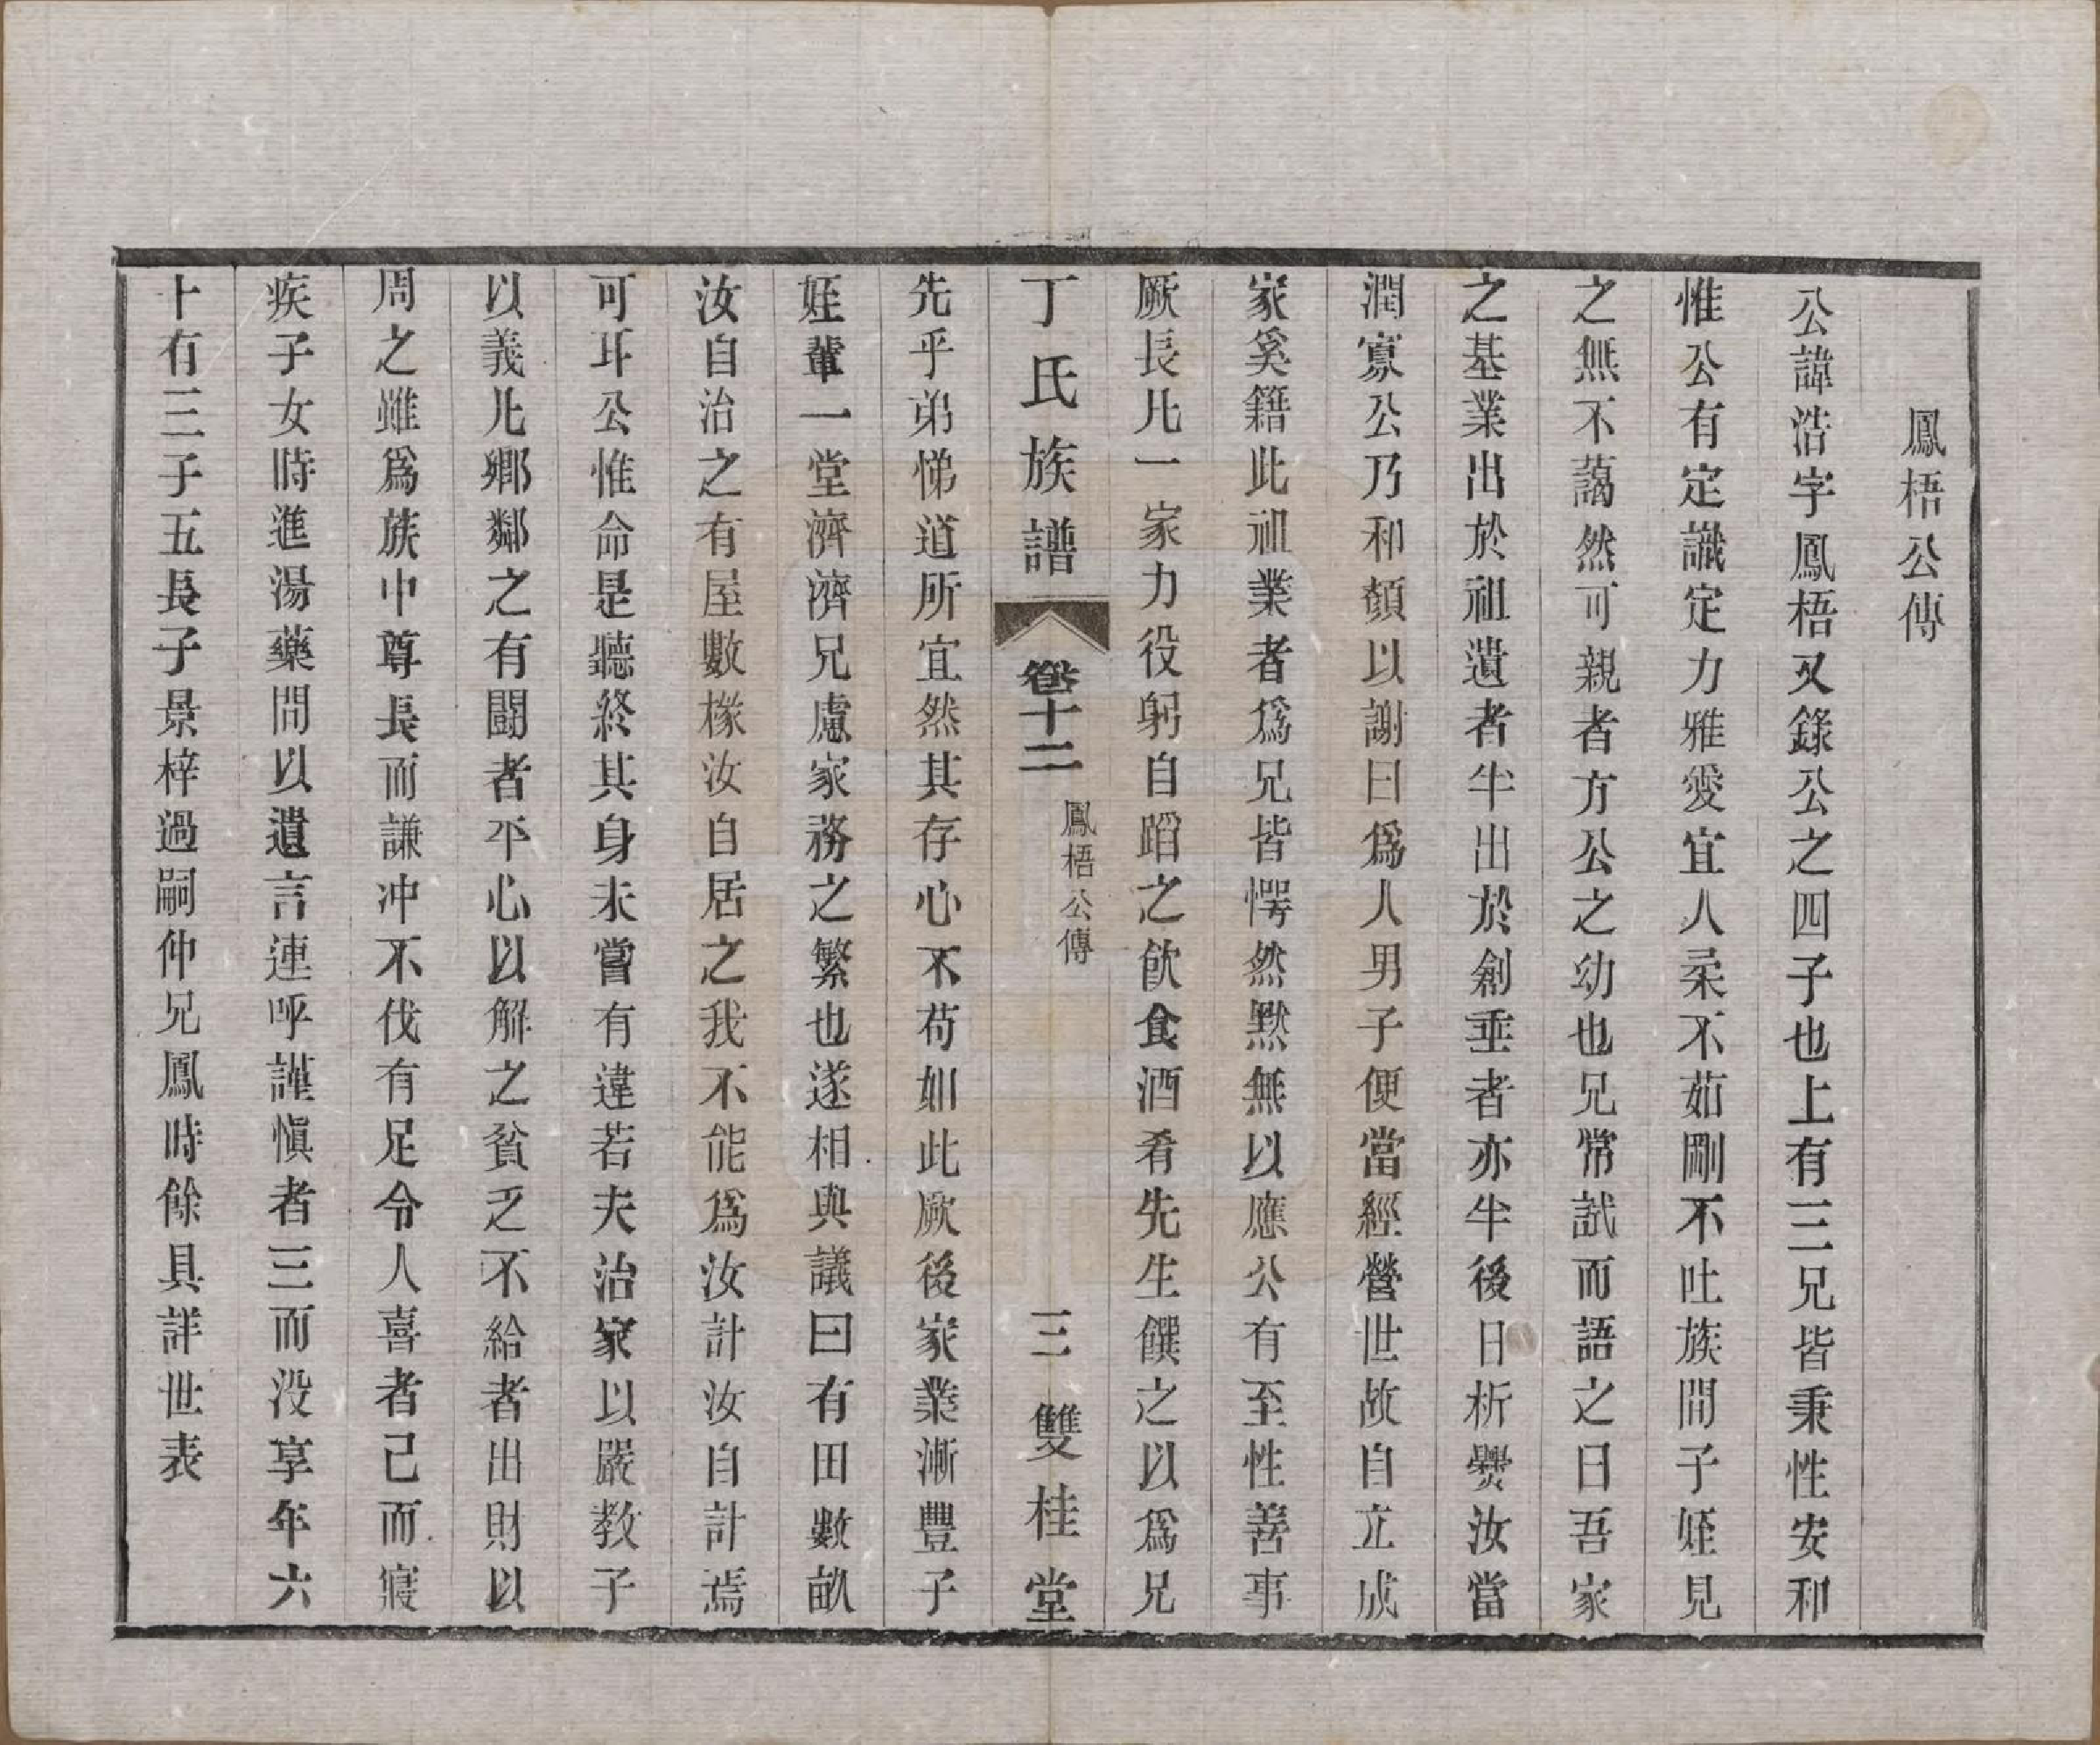 鳳梧公傳
公諱浩字鳳梧又錄公之四子也上有三兄皆秉性安和
惟公有定識定力雅愛宜人柔不茹剛不吐族間子姪見
之無不藹然可親者方公之幼也兄常試而語之曰吾家
之基業出於祖遺者半出於創垂者亦半後日析爨汝當
潤寡公乃和顏以謝曰爲人男子便當經營世故自立成
家奚籍此祖業者爲兄皆愕然默無以應公有至性善事
厥長凡一家力役躬自蹈之飮食酒肴先生饌之以爲兄
丁氏族譜 卷十二 鳳梧公傳 三 雙桂堂
先乎弟悌道所宜然其存心不苟如此厥後家業漸豐子
姪輩一堂濟濟兄慮家務之繁也遂相與議曰有田數畝
汝自治之有屋數椽汝自居之我不能爲汝計汝自計焉
可耳公惟命是聽終其身未嘗有違若夫治家以嚴教子
以義凡鄉鄰之有鬪者平心以解之貧乏不給者出財以
周之雖爲族中尊長而謙冲不伐有足令人喜者己而寢
疾子女時進湯藥問以遺言連呼謹愼者三而没享年六
十有三子五長子景梓過嗣仲兄鳳時餘具詳世表